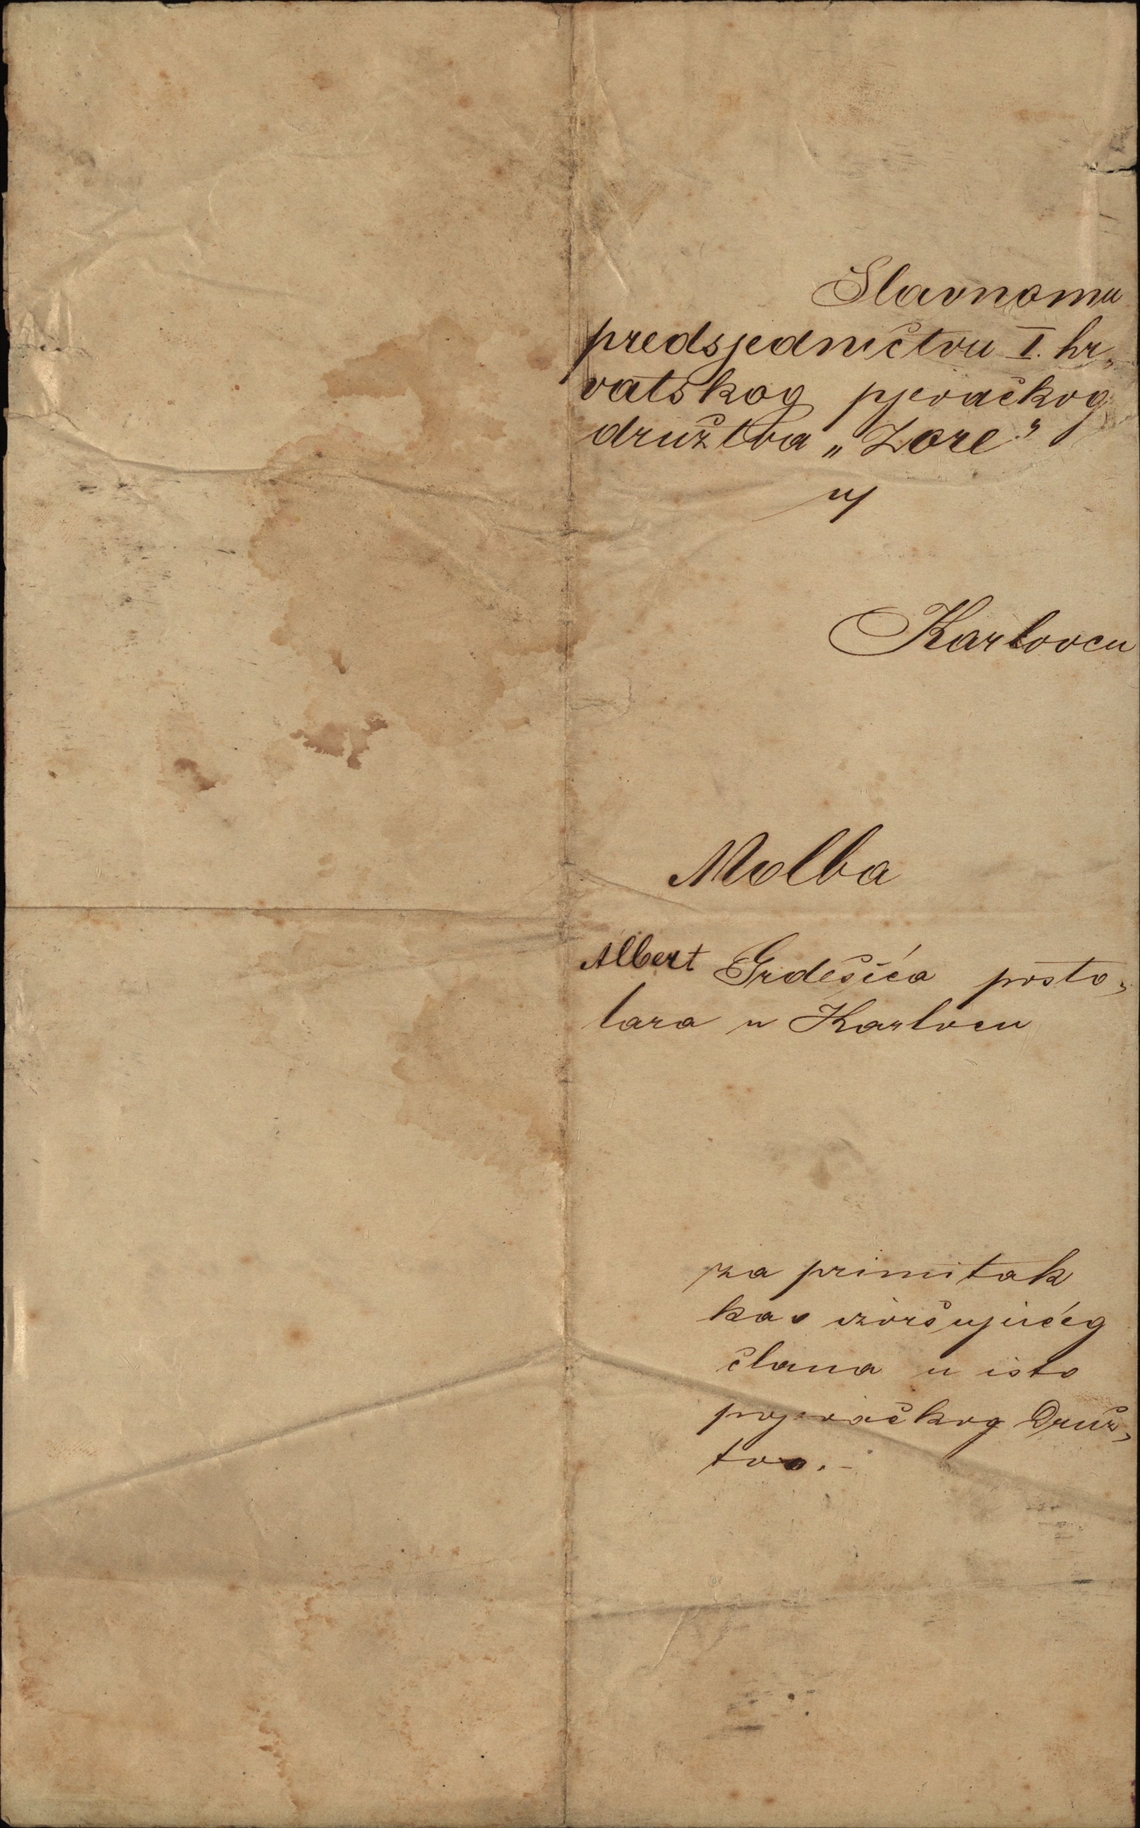 Slavnomu
predsjedničtvu I. hr„
vatskog pjevačkog
družtva „Zore“
u
Karlovcu
Molba
Albert Grdešića posto„
lara u Karlovcu
za primitak
kao izvršujućeg
člana u isto
pojevačkog Druž„
tvo.-